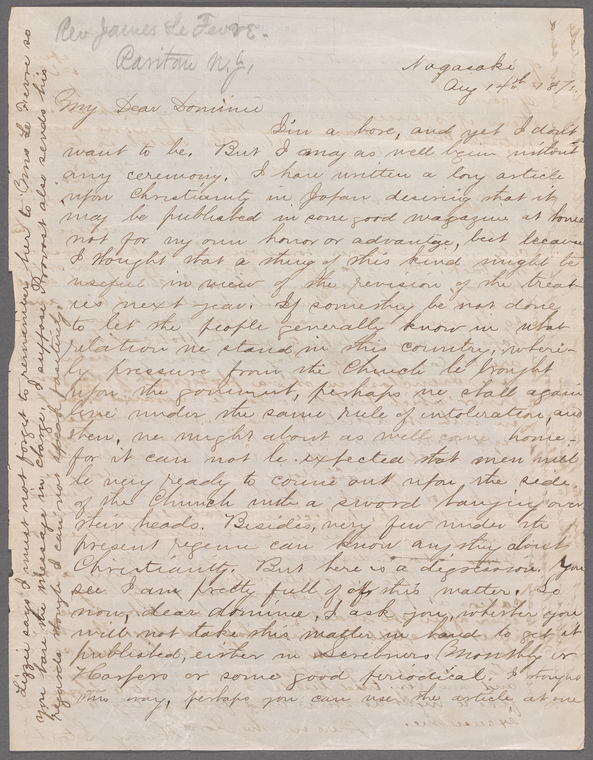 Rev James Le Fevre.
Raritan N.J.,
Nagasaki
Aug 14th 187
My Dear Dominie
I'm a bore, and yet I don't
want to be. But I may as well begin without
any ceremony. I have written a long article
upon Christianity in Japan desiring that it
may be published in some good magazine at home
not for my own honor or advantage, but because
I thought that a thing of this kind might be
useful in view of the revision of the treat-
ies next year. If something be not done
to let the people generally know in what
relation we stand in this country, where-
by pressure from the Church be brought
upon the government, perhaps we shall again
live under the same rule of intoleration, and
then, we might about as well come home-
for it can not be expected that men will
be very ready to come out upon the side
of the Church with a sword hanging over
their heads. Besides, very few under the
present regime can know anything about
Christianity. But here is a digression. You
see I am pretty full of this matter. So
now, dear dominie, I ask you, whether you
will not take this matter in hand to get it
published, either in Scribners Monthly or
Harpers or some good periodical. I thought
this way, perhaps you can use the article at one
Lizzie says I must not forget to remember her to Mrs Le Fevre so
you have the message in charge. I suppose Provost also sends his
regards though I can not speak